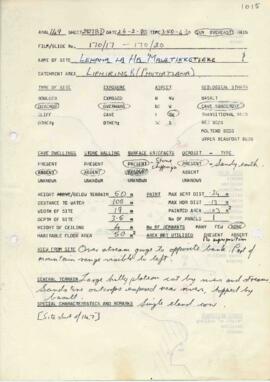 1015
ANAL 1169 SHEET 2927BD DATE 26-2-80 TIME SUN OVERCAST RAIN
FILM/SLIDE No. 170/17 - 170/20
NAME OF SITE LEHAHA LA HA MALETIEKETIEKE
CATCHMENT AREA LIPHIRING R/(PHUTHIATSANA)
TYPE OF SITE EXPOSURE ASPECT GEOLOGICAL STRATA
BOULDER EXPOSED BASALT
OVERHANG CAVE SANDSTONE
CLIFF CAVE TRANSITIONAL BEDS
OTHER: OTHER: RED BEDS
MOLTENO BEDS
UPPER BEAUFORT BEDS
CAVE DWELLINGS STONE WALLING SURFACE ARTIFACTS DEPOSIT - TYPE
PRESENT PRESENT PRESENT Stone chippings PRESENT - Sandy earth
ABSENT ABSENT ABSENT ABSENT
UNKNOWN UNKNOWN UNKNOWN
HEIGHT ABOVE/BELOW TERRAIN 50 m PAINT MAX HGHT DIST 24 m
DISTANCE TO WATCH 100 m MAX HORZ DIST m
WIDTH OF SITE 19 m PAINTED AREA m²
DEPTH OF SITE 3.6 m No OF PANELS
HEIGHT OF CEILING 4 m No OF REMNANTS MANY FEW
HABITABLE FLOOR AREA 50 m² AREA NOT UTILISED PRESENT ABSENT
VIEW FROM SITE Over stream gorge to opposite bank. Part of
mountain range visible to left.
GENERAL TERRAIN Large hilly plateau cut by rivers and streams.
Sandstone outcrops exposed near river, topped by
basalt.
SPECIAL CHARACTERISTICS AND REMARKS Single eland cow.
[Site west of 1167]